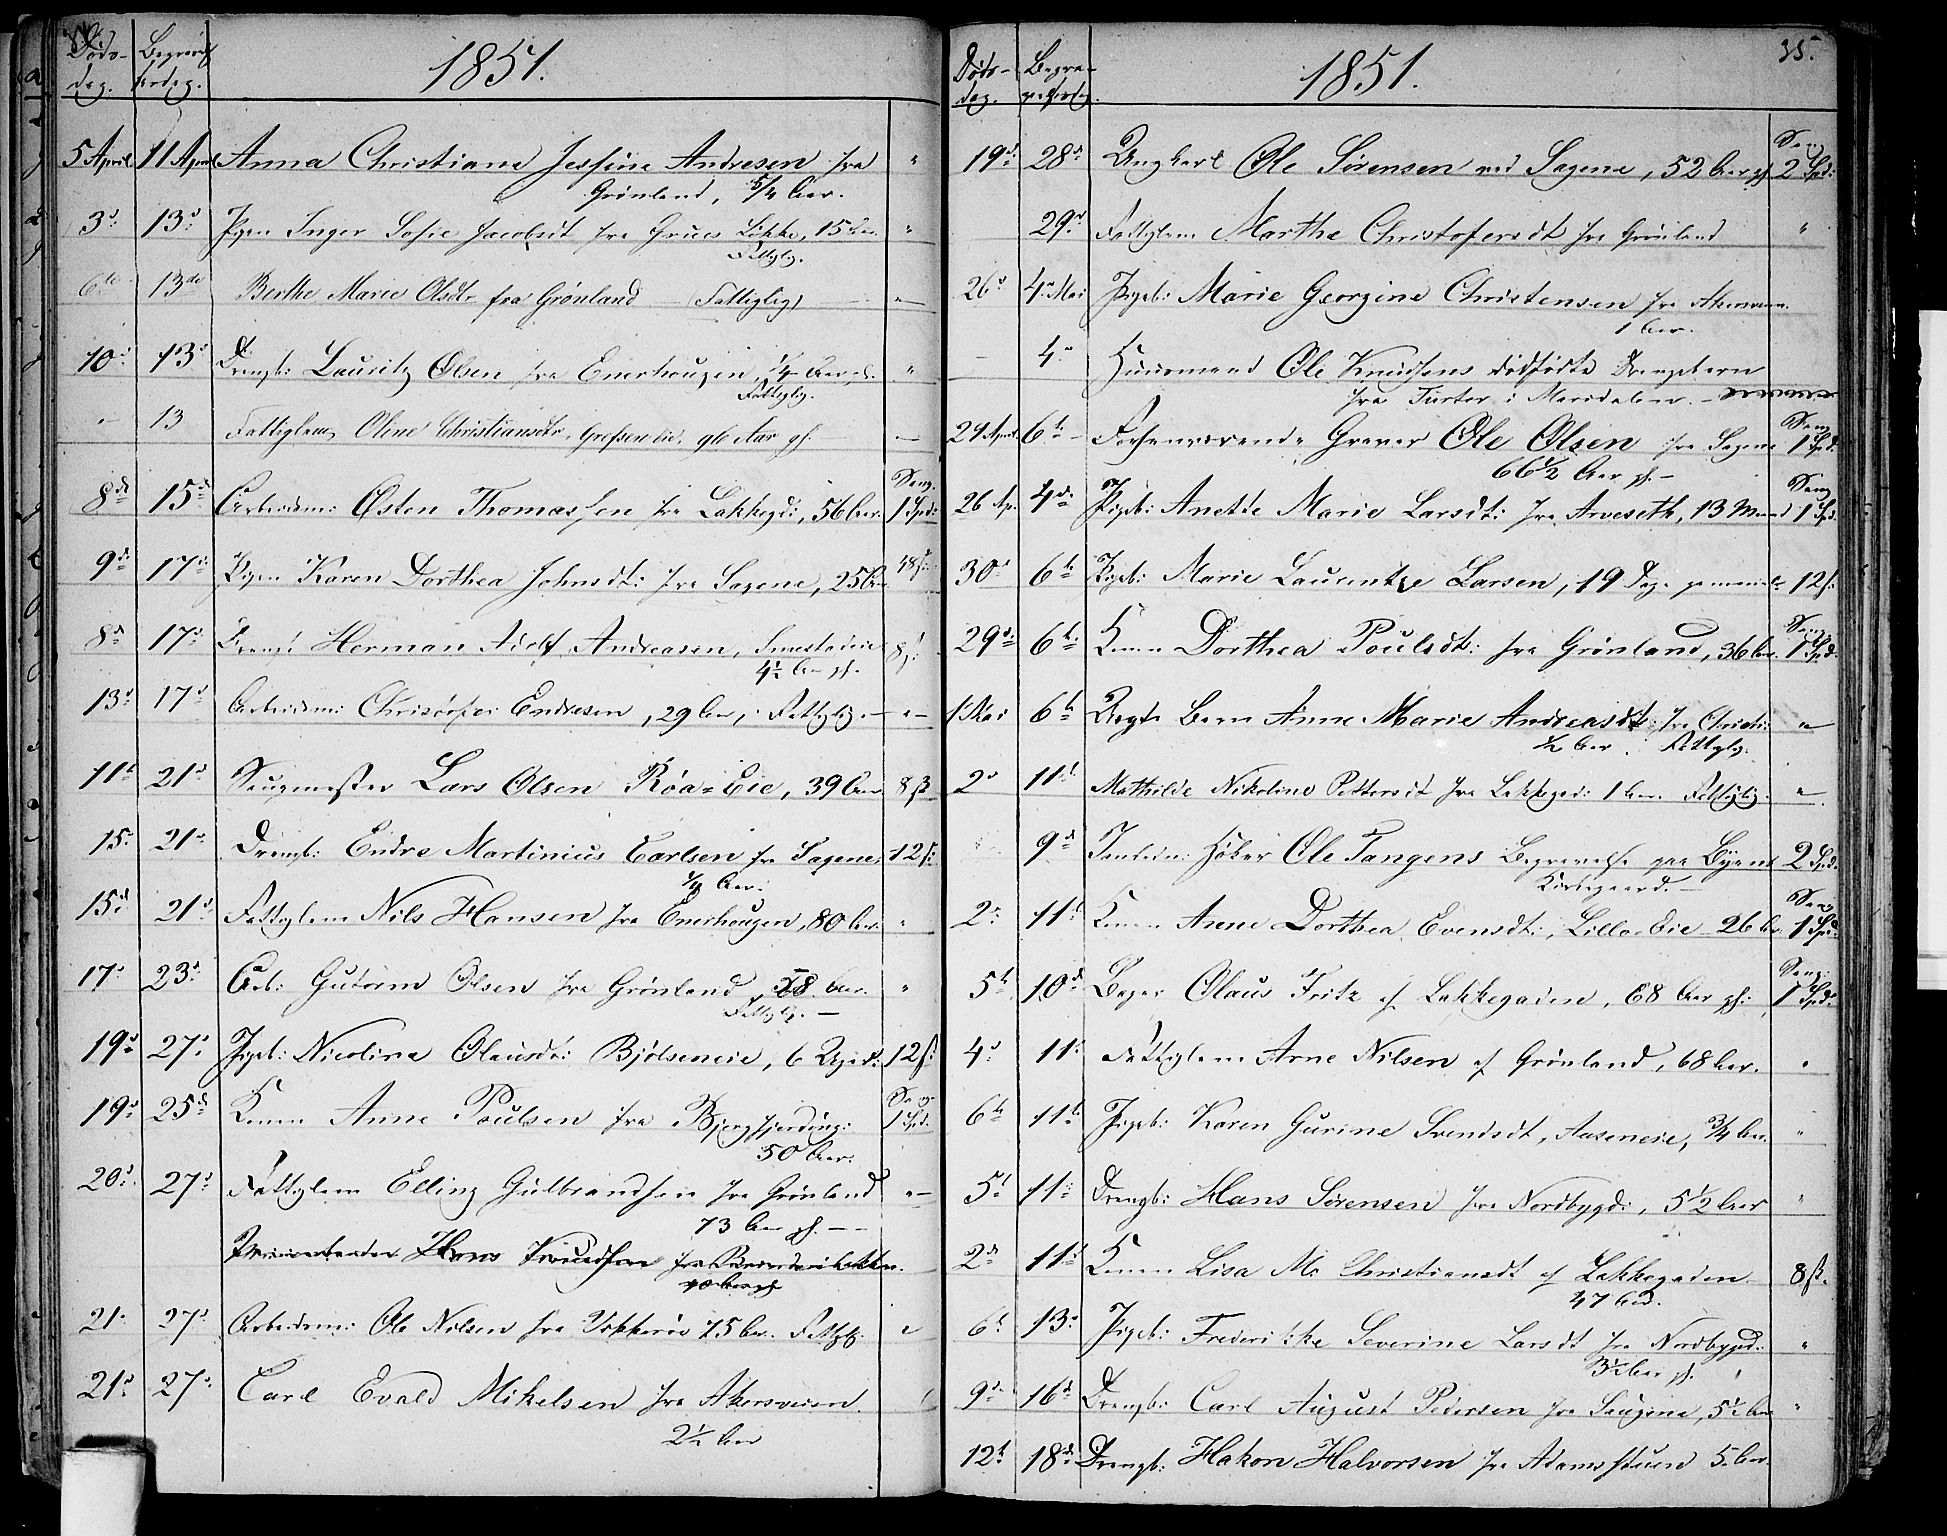 Døds-
dag.
Begravel
sesdag.
1851.
5 April 11 April Anna Christiane Jesfine Andresen fra "
Grønland, 5/4 Aar.
3d 13d Pigen Inger Sofie Jacobsdt fra Grües Løkke, 15 Aar. "
Fattiglig.
6te 13de Berthe Marie Olsdtr fra Grønland (Fattiglig) "
10d 13d Drengb: Lauritz Olsen fra Enerhougen, 1/4 Aar gl. "
Fattiglig.
" 13 Fattiglem Oline Christiansdtr, Grefsen Eie, Aar gl.
Seng.
8de 15de Arbeidsm: Østen Thomassen fra Lakkegd:, 56 Aar. 1 Spd:
9de 17de Pigen Karen Dorthea Johnsdt: fra Sagene, 25 Aar 48 s:
8d 17d Drengb Herman Adolf Andreasen, 8 s:
4 1/2 Aar gl.
13d 17d Arbeidsm: Christofer Endresen, 29 Aar, Fattiglig. "
11t 21d Saugmester Lars Olsen Røa=Eie, 39 Aar 8 s
15. 21d Drengb: Endre Martinius Carlsen fra Sagene, 12 s:
Aar:
15d 21d Fattiglem Nils Hansen fra Enerhougen, 80 Aar. "
17d 23d Arb: Gutorm Olsen fra Grønland, 58 Aar. "
Fattiglig.
19d 27d Pigeb: Nicolina Olausdt: Bjølseneie, 6 Uger: 12 s:
Seng.
19d 25d Konen Anne Poulsen fra Bjergfjerding: 1 Spd.
50 Aar.
20d 27d Fattiglem Elling Gulbrandsen fra Grønland "
73 Aar gl.
Hans Knudsen fra
21d 27d Arbeidsm: Ole Nilsen fra 75 Aar. Fattigl: "
21d 27d Carl Evald Mikelsen fra Akersveien.
2 1/2 Aar
Døds-
dag.
Begra-
velsesdag.
1851.
35.
Seng
19d 28d Ungkarl Ole Sørensen ved Sagene, 52 Aar gl 2 Spd:
29d Fattiglem Marthe Christofersdt fra Grønland "
26d 4d Mai Pigeb: Marie Georgine Christensen fra Akersveien.
1 Aar.
4d Huusmand Ole Knudsens dødfødte Drengebarn
fra i Maridalen.
Seng
29 April 6te Forhenværende Graver Ole Olsen fra Sagene 1 Spd.
66 1/2 Aar gl.
Seng
26 Ap. 4de Pigeb: Anette Marie Larsdt: fra Arveseth, 13 Maaned 1 Spd.
30d 6te Pigeb: Marie Laurentze Larsen, 19 Dage gammel 12 s:
Seng:
29d 6te Konen Dorthea Poulsdt: fra Grønland, 36 Aar. 1 Spd.
1 Mai 6te Uægte Barn Anne Marie Andreasdt: fra Christi: "
1/2 Aar. Fattiglig.
2d 11te Mathilde Nikoline Pettersdt fra Lakkegad: 1 Aar. Fattiglig. "
9d Høker Ole Tangens Begravelse paa Byens 2 Spd.
Kirkegaard.
Seng
2d 11te Konen Anne Dorthea Evensdt:, Lillo-Eie 26 Aar 1 Spd:
Seng:
5t 10d Bager Olaus Fritz af Lakkegaden, 68 Aar gl: 1 Spd.
4d 11t Fattiglem Arne Nilsen af Grønland, 68 Aar. "
6te 11te Pigeb: Karen Gurine Svendsdt, Aaseneie, 3/4 Aar. "
5t 11t Drengb: Hans Sørensen fra Nordbygd:, 5 1/2 Aar "
2d 11te Konen Lisa Ma Christiansdt af Lakkegaden 8 s.
47 Aar.
6t 13d Pigeb: Frederikke Severine Larsdt fra Nordbygd: "
3 1/2 Aar gl.
9d 16d Drengb: Carl August Pedersen fra Saugene, 5 1/2 Aar "
12t 18de Drengb: Hakon Halvorsen fra Adamstuen 5 Aar.